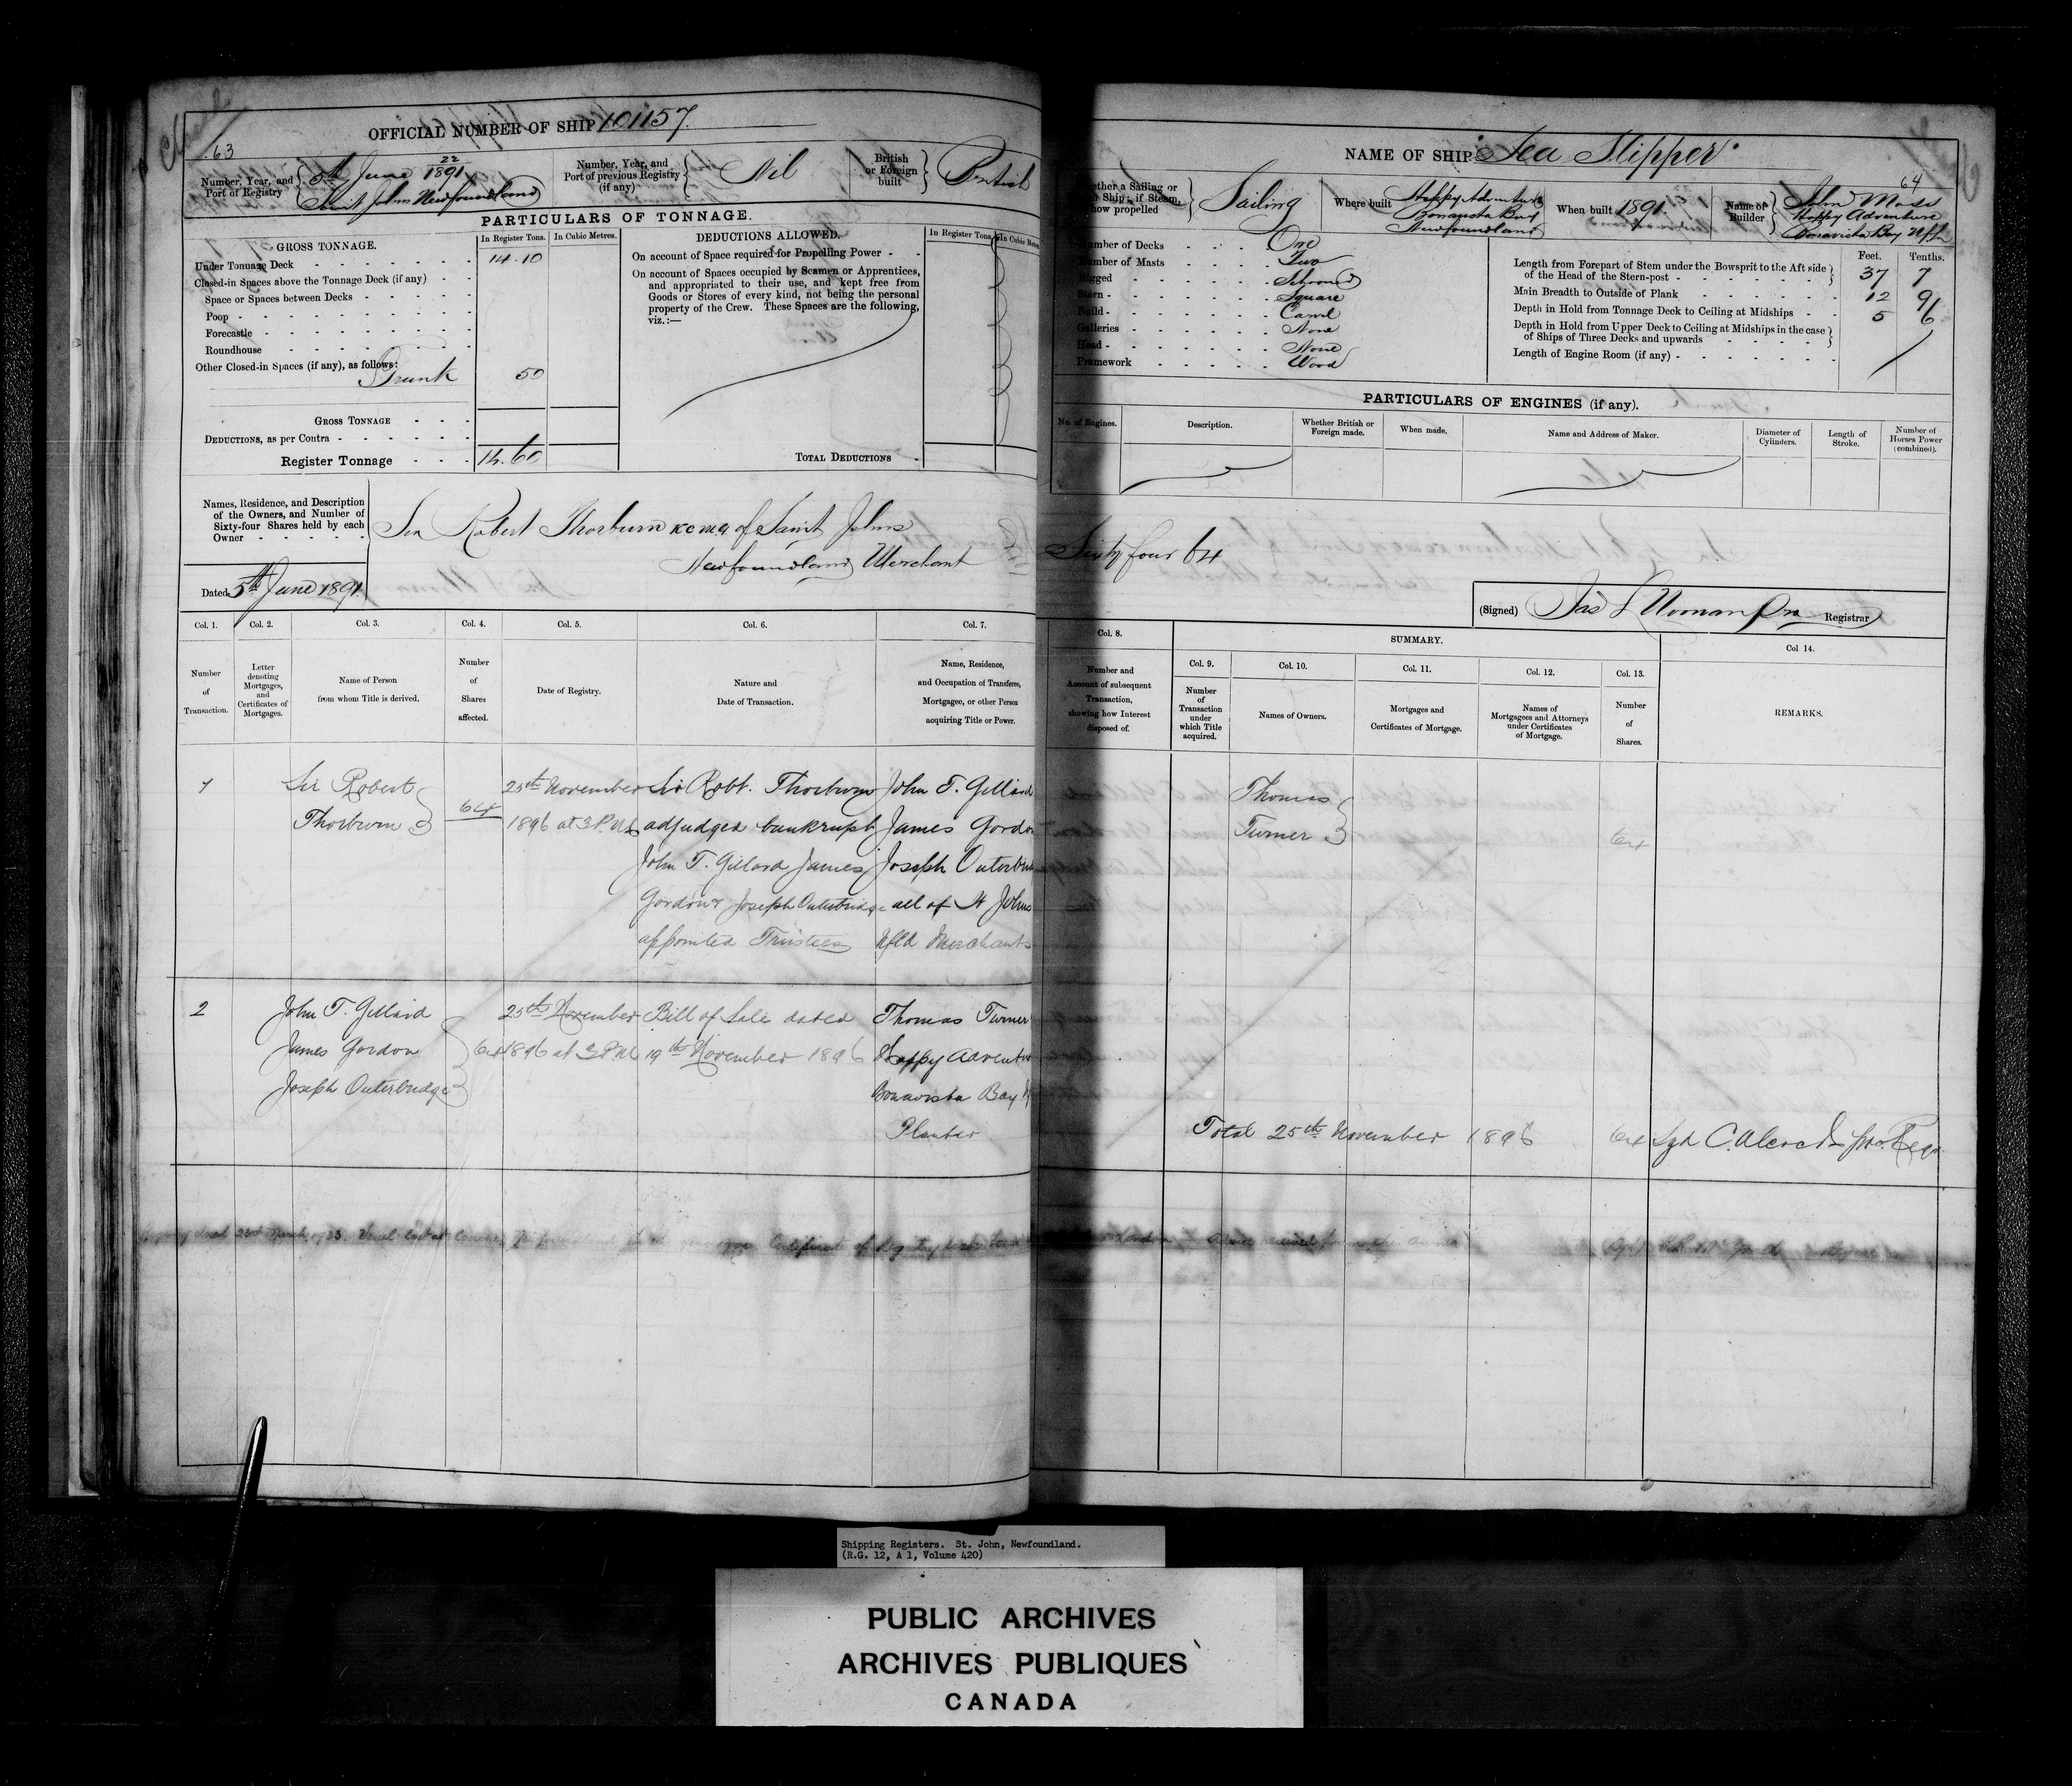 OFFICIAL NUMBER OF SHIP 101157.
63
Number, Year, and Port of Registry
22
5th June 1891
Saint Johns Newfoundland
Number, Year, and Port of previous Registry (if any)
Nil
British or Foreign built
British
PARTICULARS OF TONNAGE.
GROSS TONNAGE.
In Register Tons.
In Cubic Metres.
Under Tonnage Deck 14.10
Closed-in Spaces above the Tonnage Deck (if any)
Space or Spaces between Decks
Poop
Forecastle
Roundhouse
Other Closed-in Spaces (if any), as follows:
Trunk 50
GROSS TONNAGE
DEDUCTIONS, as per Contra
Register Tonnage 14.60
DEDUCTIONS ALLOWED.
In Register Tons.
In Cubic Metres
On account of Space required for Propelling Power
On account of Spaces occupied by Seamen or Apprentices,
and appropriated to their use, and kept free from
Goods or Stores of every kind, not being the personal
property of the Crew. These Spaces are the following,
viz.:—
TOTAL DEDUCTIONS
Names, Residence, and Description
of the Owners, and Number of
Sixty-four Shares held by each
Owner
Sir Robert Thorburn KCMG of Saint Johns
Newfoundland Merchant
Dated 5th June 1891
Col. 1.
Col. 2.
Col. 3.
Col. 4.
Col. 5.
Col. 6.
Col. 7.
Number of Transaction.
Letter denoting Mortgages, and Certificates of Mortgages.
Name of Person from whom Title is derived.
Number of Shares affected.
Date of Registry.
Nature and Date of Transaction.
Name, Residence, and Occupation of Transferee, Mortgagee, or other Person acquiring Title or Power.
1
Sir Robert
Thorburn
64
25th November
1896 at 3 P.M.
Sir Robt. Thorburn
adjudged bankrupt
John T. Gillard James
Gordon & Joseph Outerbridge
appointed Trustees
John T. Gillard
James Gordon
Joseph Outerbri
all of St Johns
Nfld Merchants
2
John T. Gillard
James Gordon
Joseph Outerbridge
64
25th November
1896 at 3 P.M.
Bill of Sale dated
19th November 1896
Thomas Turner
Happy Adventur
Bonavista Bay
Planter
NAME OF SHIP Sea Slipper
64
ether a Sailing or
Ship; if Steam,
how propelled
Sailing
Where built
Happy Adventure
Bonavista Bay
Newfoundland
When built 1891
Name of Builder
John Moss
Happy Adventure
Bonavista Bay
Number of Decks One
Number of Masts Two
Rigged Schooner
Stern Square
Build Carvel
Galleries None
Head None
Framework Wood
Feet. Tenths.
Length from Forepart of Stem under the Bowsprit to the Aft side
of the Head of the Stern-post 37 7
Main Breadth to Outside of Plank 12 9
Depth in Hold from Tonnage Deck to Ceiling at Midships 5 6
Depth in Hold from Upper Deck to Ceiling at Midships in the case
of Ships of Three Decks and upwards
Length of Engine Room (if any)
PARTICULARS OF ENGINES (if any).
No. of Engines.
Description.
Whether British or Foreign made.
When made.
Name and Address of Maker.
Diameter of Cylinders.
Length of Stroke.
Number of Horses Power (combined).
Sixty four 64
(Signed) Registrar
Col. 8.
SUMMARY.
Col. 9.
Col. 10.
Col. 11.
Col. 12.
Col. 13.
Col 14.
Number and Account of subsequent Transaction, showing how Interest disposed of.
Number of Transaction under which Title acquired.
Names of Owners.
Mortgages and Certificates of Mortgage.
Names of Mortgagees and Attorneys under Certificates of Mortgage.
Number of Shares.
REMARKS.
Thomas
Turner
64
Total 25th November 1896 64
Shipping Registers. St. John, Newfoundland.
(R.G. 12, A 1, Volume 420)
PUBLIC ARCHIVES
ARCHIVES PUBLIQUES
CANADA